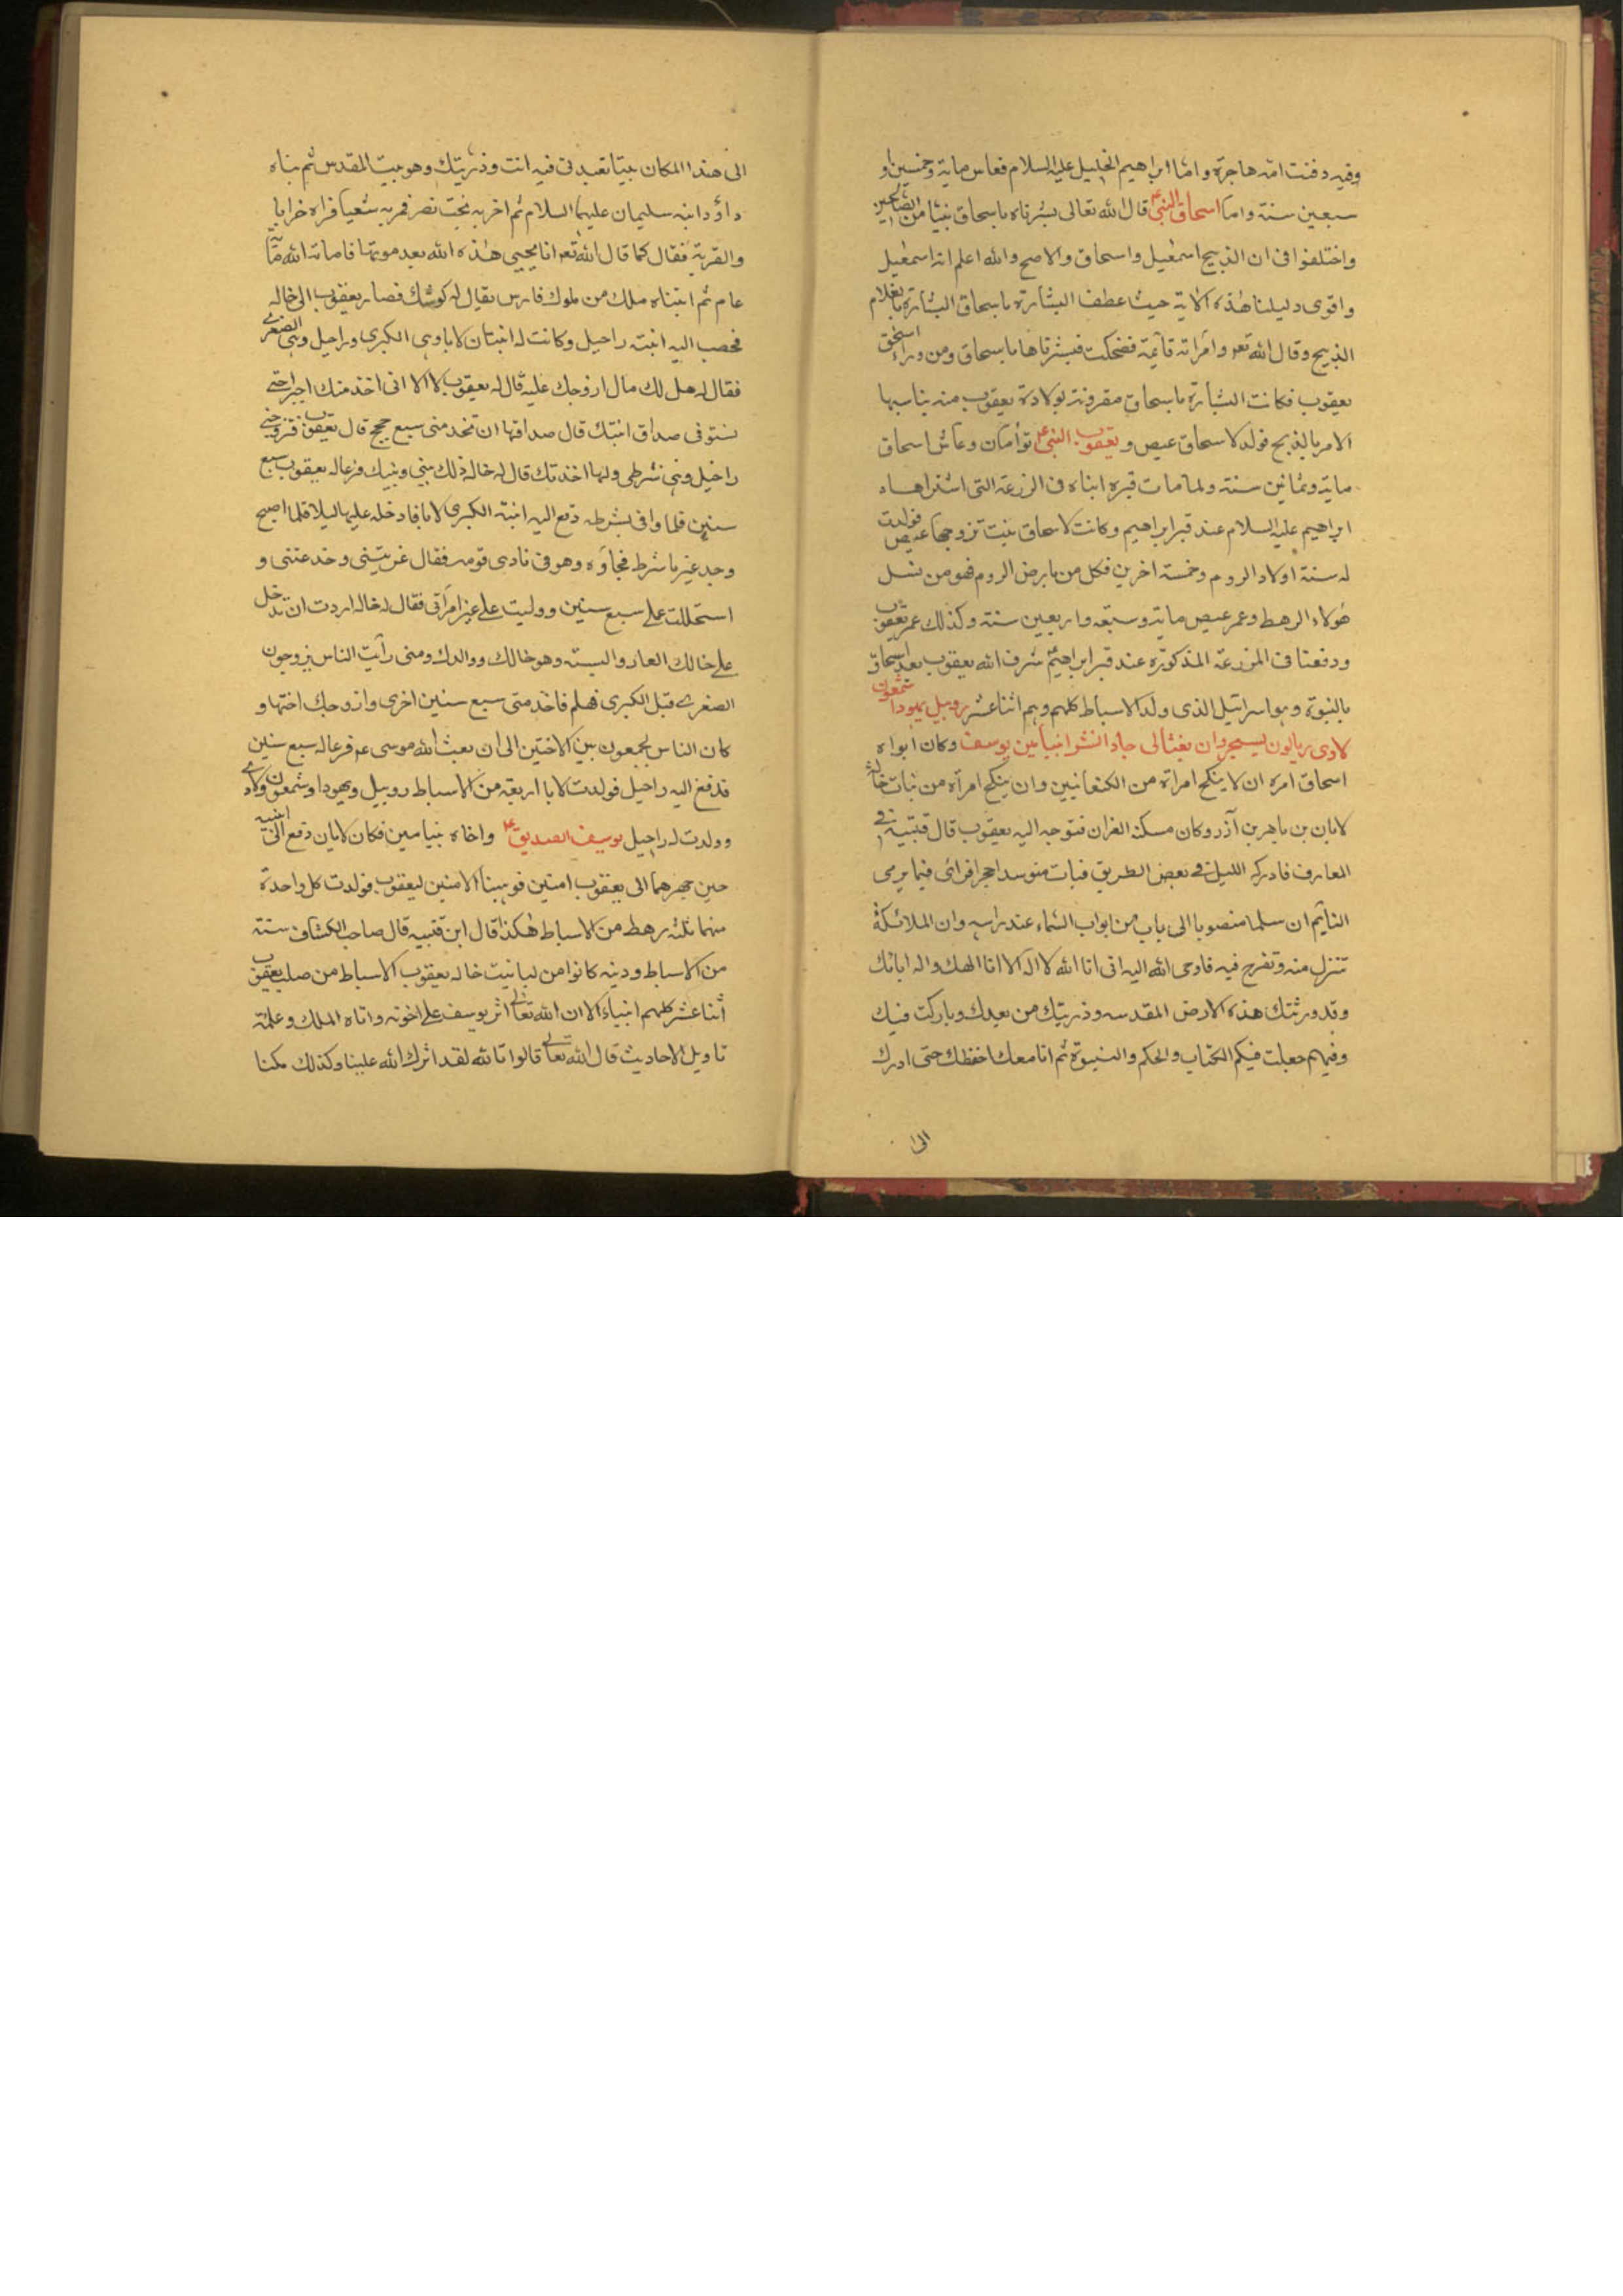 وفيه دفنت امه هاجرة واما ابراهيم الخليل عليه السلام فعاش ماية وخمسين او
سبعين سنة واما اسحاق النبي ع قال الله تعالى بشرناه باسحاق نبيا من الصالحين
واختلفوا فى ان الذبيح اسمعيل واسحاق والاصح والله اعلم انه اسمعيل
واقوى دليلنا هذه الاية حيث عطف البشارة باسحاق البشارة بغلام
الذبيح وقال الله تعه وامراته قآئمة فضحكت فبشرناها باسحاق ومن وراء اسحق
يعقوب فكانت البشارة باسحاق مقرونة بولادة يعقوب منه يناسبها
الامر بالذبح فولد لاسحاق عيص و يعقوب النبي ع توأمان وعاش اسحاق
ماية وثمانين سنة ولما مات قبره ابناه فى الزرعة التى اشتراها
ابراهيم عليه السلام عند قبر ابراهيم وكانت لاسحاق بنت تزوجها عيص فولدت
له ستة اولاد الروم وخمسة اخرين فكل من بارض الروم فهو من نسل
هولاء الرهط وعمر عيص ماية وسبعة واربعين سنة وكذلك عمر يعقوب
ودفنا فى المزرعة المذكورة عند قبر ابراهيم شرف الله يعقوب بعد اسحاق
بالنبوة وهو اسرائيل الذى ولد الاسباط كلهم وهم اثنا عشر روبيل يهودا شمعون
لاوى ريالون يسيجر دان يفثالى جاد انشر ابنيامين يوسف وكان ابواه
اسحاق امره ان لا ينكح امراة من الكنعانيين وان ينكح امرأة من بنات خاله
لابان بن ياهر بن آذر وكان مسكنه الفران فتوجه اليه يعقوب قال قتيبة في
العارف فادركه الليل في بعض الطريق فبات متوسدا حجرا فرائى فيما يرمى
النآيم ان سلما منصوبا الى باب من ابواب السماء عند راسه وان الملائكة
تنزل منه وتعرج فيه فاوحى الله اليه انى انا الله لا اله الا انا الهك واله ابائك
وقد ورثتك هذه الارض المقدسه وذريتك من بعدك وباركت فيك
وفيهم جعلت فيكم الكتاب والحكم والنبوة ثم انا معك احفظك حتى ادرك
الى
الى هذا المكان بيتا تعبدنى فيه انت وذريتك وهو بيت المقدس ثم بناه
داؤد ابنه سليمان عليهما السلام ثم اخربه بخت نصر فمر به شعيا فراه خرابا
والقرية فقال كما قال الله تعه انا يحيى هذه الله بعد موتها فاماته الله مآئة
عام ثم ابتناه ملك من ملوك فارس يقال له كوشك فصار يعقوب الى خاله
فخصب اليه ابنته راحيل وكانت له ابنتان لايا وهى الكبرى وراحيل وهى الصغرى
فقال له هل لك مال ازوجك عليه قال له يعقوب لا الا انى اخذ منك اجيرا حتى
نستوفى صداق ابنتك قال صداقها ان تخد منى سبع حجج قال يعقوب فتزوجنى
راحيل وهى شرطى ولها اخذتك قال له خاله ذلك بينى وبينك فرعا له يعقوب سبع
سنين فلما وافى بشرطه دفع اليه ابنته الكبرى لايا فادخله عليها ليلا فلما اصبح
وجد غير ما شرط فجاؤه وهو فى نادى قومه فقال غريتينى وخدعتنى و
استحللت على سبع سنين ووليت على غير امراتى فقال له خاله اردت ان تدخل
على خالك العار والبسته وهو خالك ووالدك ومتى رأيت الناس يزوجون
الصغرى قبل الكبرى فهلم فاخد متى سبع سنين اخرى وازوجك اختها و
كان الناس يجمعون بين الاختين الى ان بعث الله موسى عم فرعا له سبع سنين
فدفع اليه راحيل فولدت لايا اربعة من الاسباط روبيل ويهودا وشمعون ولاوي
وولدت له راحيل يوسف الصديق ع واخاه بنيامين فكان لابان دفع الى ابنتيه
حين جهزهما الى يعقوب امتين فوهبتا الامتين ليعقوب فولدت كل واحدة
منهما ثلثه رهط من الاسباط هكذا قال ابن قتيبه قال صاحب الكشاف ستة
من الاسباط ودينه كانوا من ليا بنت خاله يعقوب الاسباط من صلب يعقوب
أثنا عشر كلهم انبياء الا ان الله تعالى اثر يوسف على اخوته واتاه الملك وعلمه
تاويل الاحاديث قال الله تعالى قالوا تا لله لقد اثرك الله علينا وكذلك مكنا